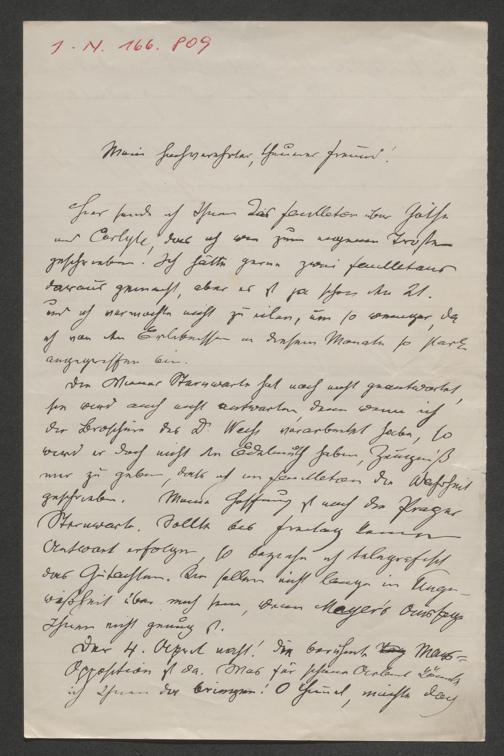 I. N. 166.809
Mein hochverehrter, theurer Freund!
Hier sende ich Ihnen das Feuilleton über Göthe
und Carlyle, das ich nur zum eigenen Troste
geschrieben. Ich hätte gerne zwei Feuilletons
daraus gemacht, aber es ist ja schon der 21.
und ich vermochte nicht zu eilen, um so weniger, da
ich von den Erlebnissen in diesem Monate so stark
angegriffen bin.
Die Wiener Sternwarte hat noch nicht geantwortet,
sie wird auch nicht antworten, denn wenn ich
die Broschüre des Dr Weiß verarbeitet habe, so
wird er doch nicht den Edelmuth haben, Zeugniß
mir zu geben, daß ich im Feuilleton die Wahrheit
geschrieben. Meine Hoffnung ist noch die Prager
Sternwarte. Sollte bis Freitag keine
Antwort erfolgen, so ich telegrafisch
das Gutachten. Sie sollen nicht lange in Unge-
wißheit über mich sein, wenn Mayers
Ihnen nicht genug ist.
Der 4. August naht! die berühmte Mars-
Opposition ist da. Was für schöne könnte
ich Ihnen da bringen! O Himmel, möchte doch